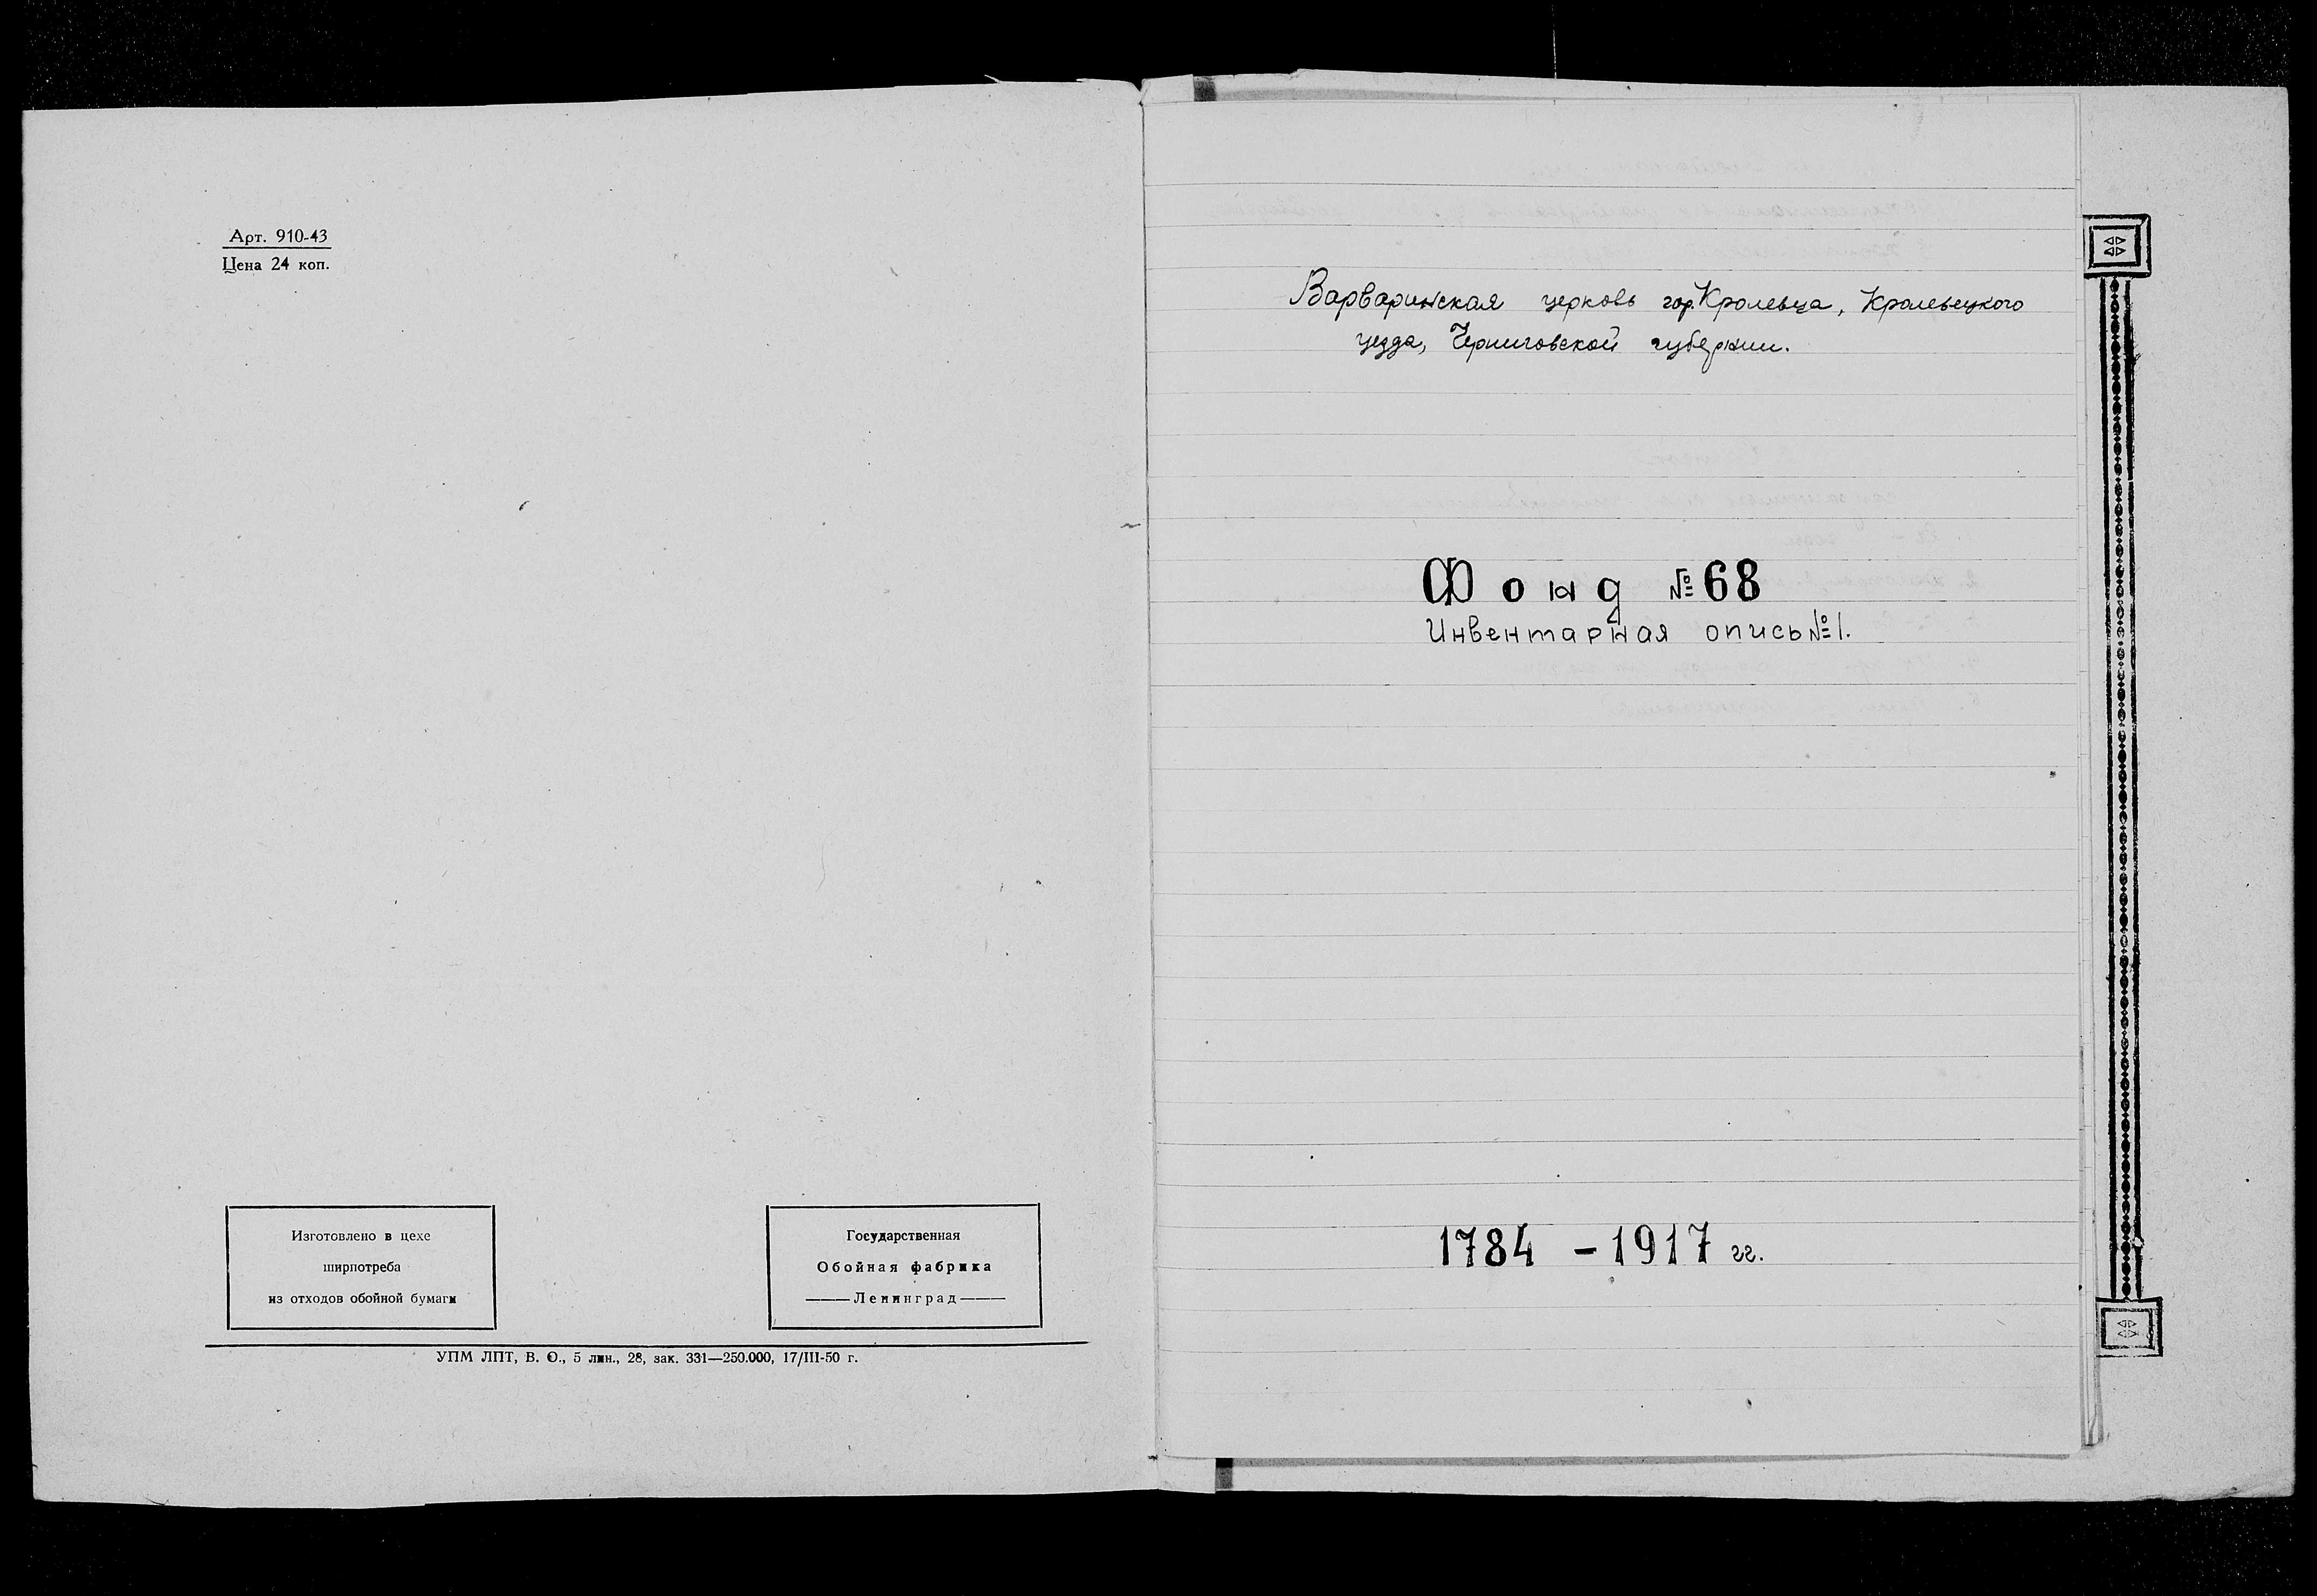 Арт. 910-43
Цена 24 коп.
Изготовлено в цехе
ширпотреба
из отходов обойной бумаги
Государственная
Обойная фабрика
Ленинград
УПМ ЛПТ, В. О., 5 лин., 28, зак. 331—250.000, 17/III-50 г.
Варваринская церковь гор. Кролевца, Кролевецкого
уезда, Черниговской губернии.
Фонд № 68
Инвентарная опись № 1.
1784 - 1917 гг.